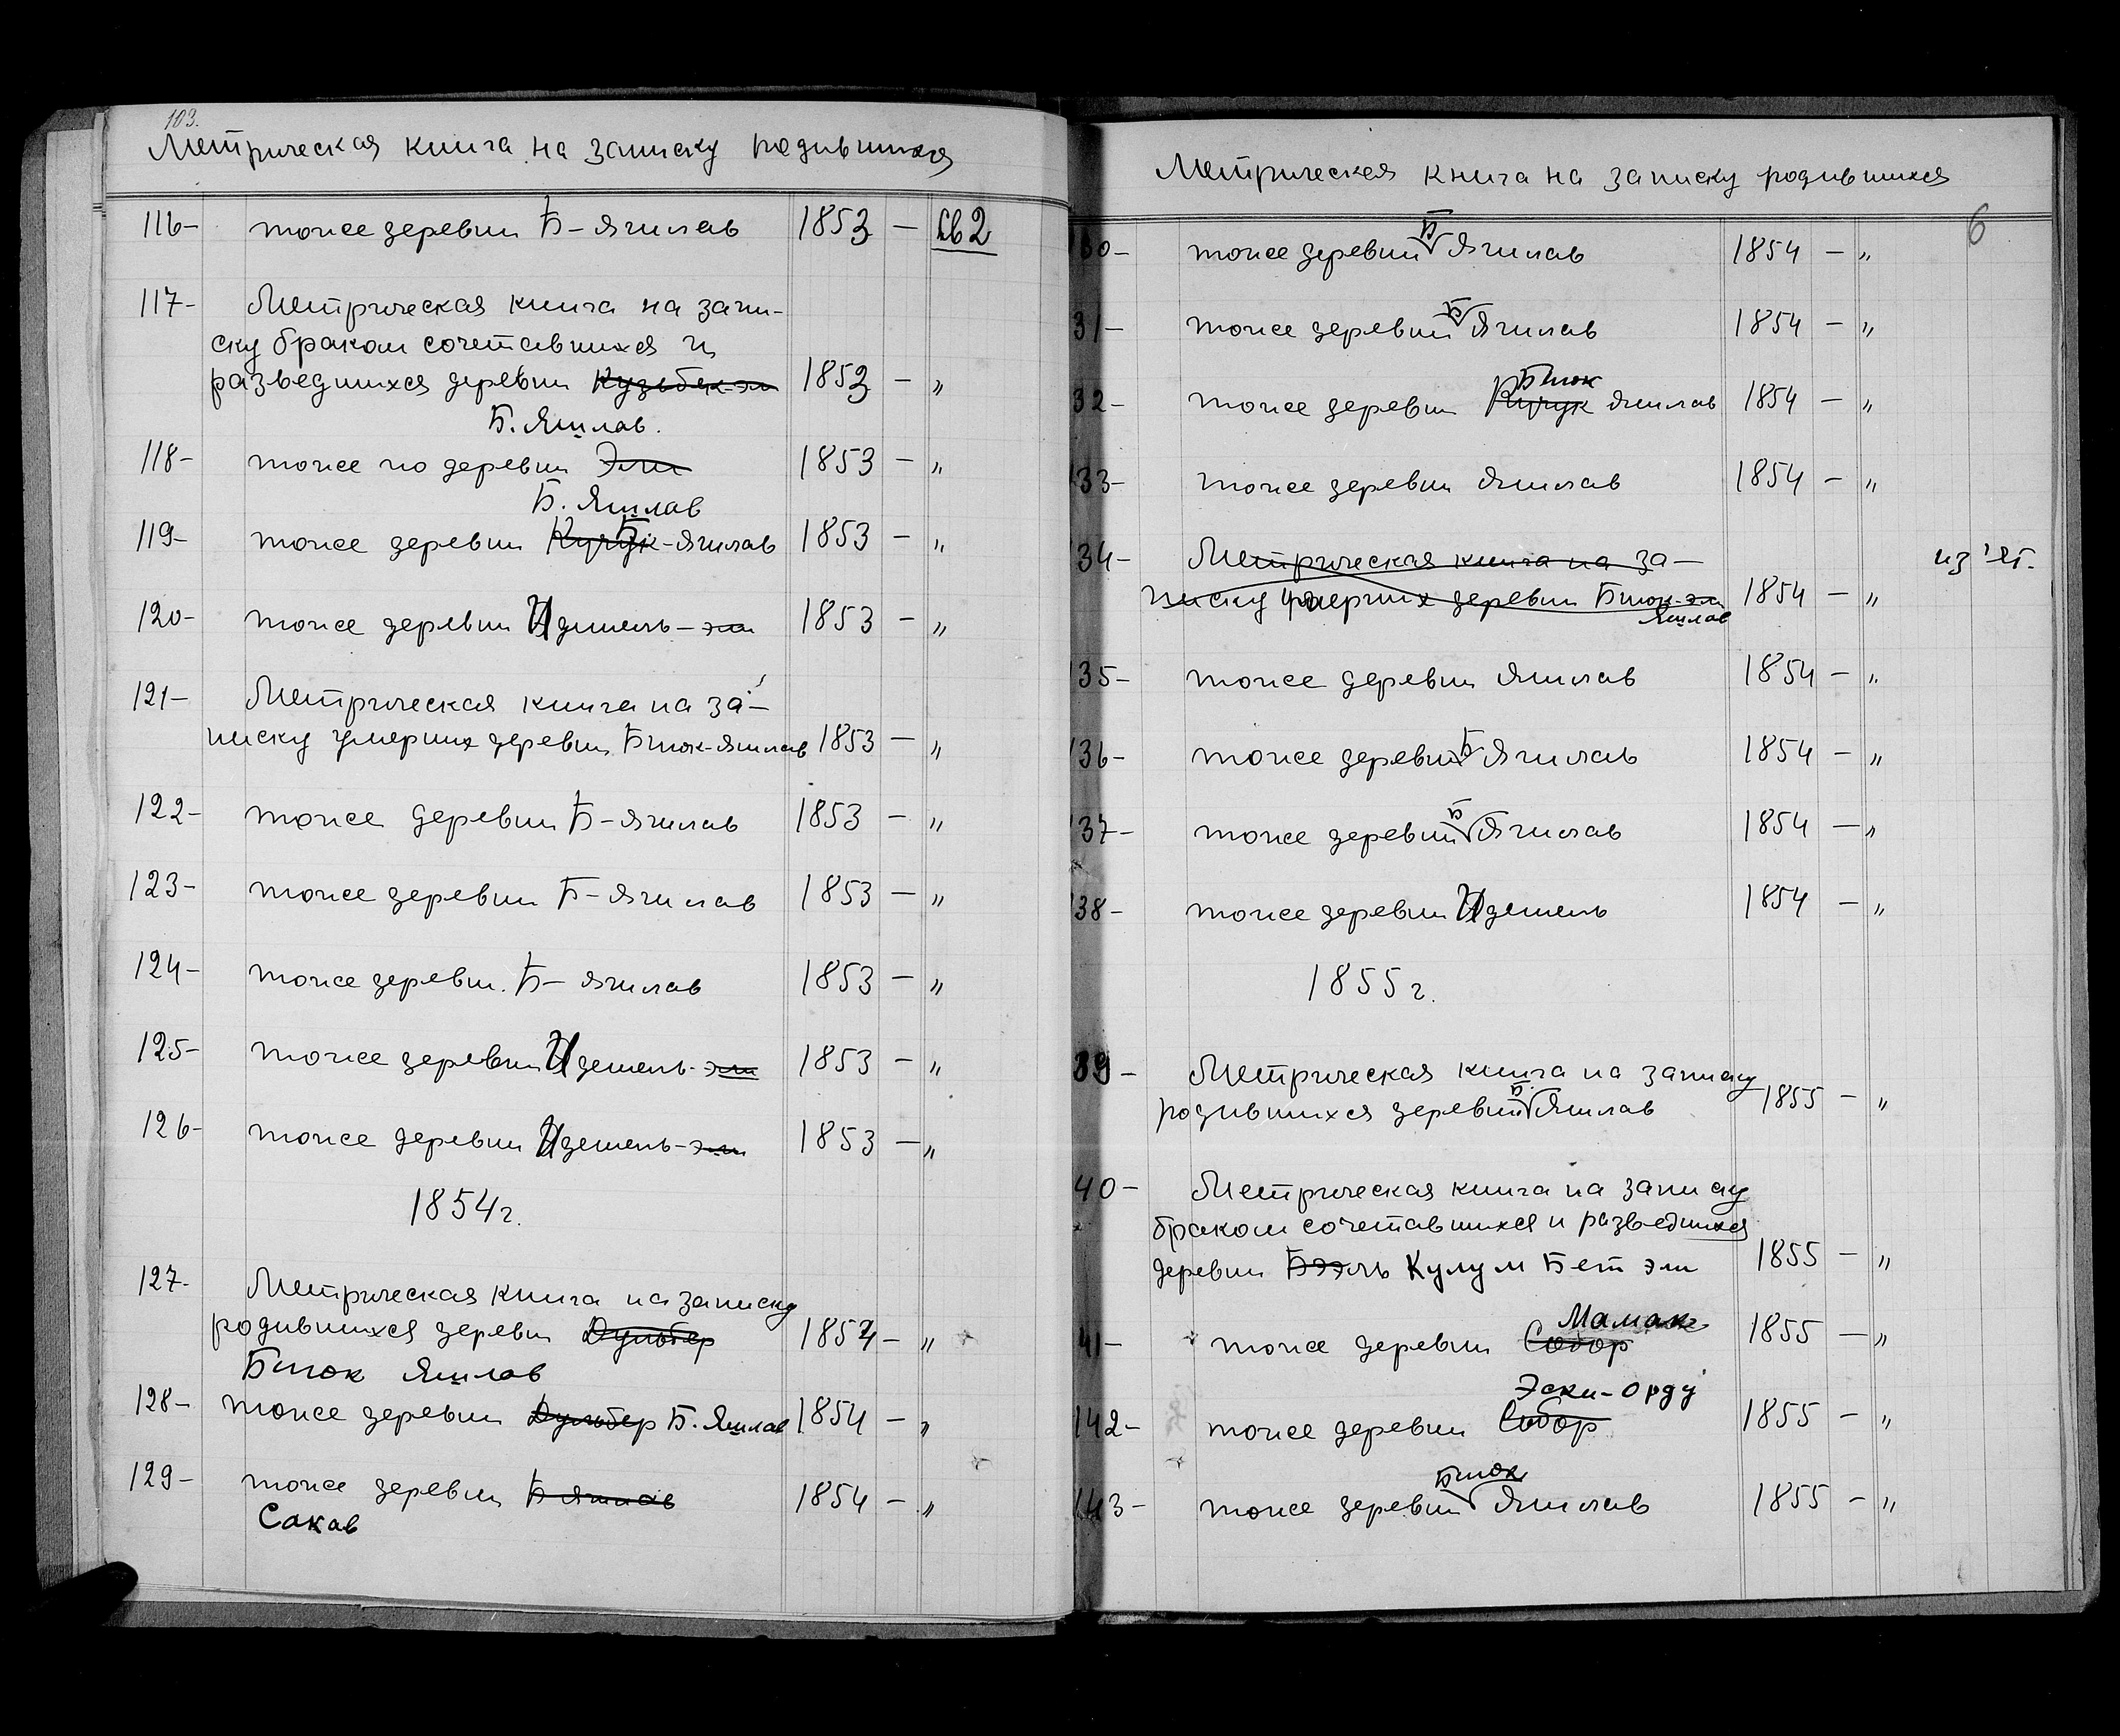 103.
Метрическая книга на записку родившихся
116- тоже деревни Б-Яшлав 1853 - св 2
117- Метрическая книга на запи-
ску браком сочетавшихся и
разведшихся деревни Кузьбек-эли 1853 - "
Б. Яшлав.
118- тоже по деревни Эли 1853 - "
Б. Яшлав
119- тоже деревни Кучук Б-Яшлав 1853 - "
120- тоже деревни Идешель-эли 1853 - "
121- Метрическая книга на за-
писку умерших деревни Биюк-Яшлав 1853 - "
122- тоже деревни Б-Яшлав 1853 - "
123- тоже деревни Б-Яшлав 1853 - "
124- тоже деревни. Б-Яшлав 1853 - "
125- тоже деревни Идешель-эли 1853 - "
126- тоже деревни Идешель-эли 1853 - "
1854 г.
127- Метрическая книга на записку
родившихся деревни Дульбер 1854 - "
Биюк Яшлав
128- тоже деревни Дульбер Б. Яшлав 1854 - "
129- тоже деревни Б Яшлав 1854 - "
Сакав
Метрическая книга на записку родившихся
6
30- тоже деревни Б Яшлав 1854 - "
31- тоже деревни Б Яшлав 1854 - "
Биюк
32- тоже деревни Кучук Яшлав 1854 - "
133- тоже деревни Яшлав 1854 - "
134- Метрическая книга на за-
писку умерших деревни Биюк-эли 1854 - "
Яшлав
135- тоже деревни Яшлав 1854 - "
136- тоже деревни Б Яшлав 1854 - "
137- тоже деревни Б Яшлав 1854 - "
138- тоже деревни Идешель 1854 - "
1855 г.
39- Метрическая книга на записку
родившихся деревни Б Яшлав 1855 - "
40- Метрическая книга на записку
браком сочетавшихся и разведшихся
деревни Бээль Кулум Бет эли 1855 - "
Мамак
41- тоже деревни Собор 1855 - "
Эски-Орду
142- тоже деревни Собор 1855 - "
Биюк
143- тоже деревни Яшлав 1855 - "